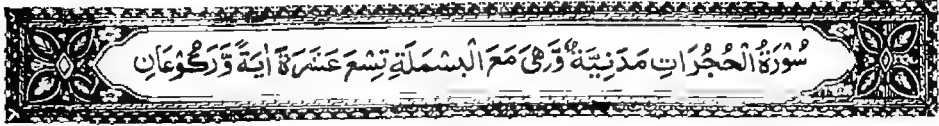 سُوْرَةُ الْحُجُرَاتِ مَدَنِيَّةٌ وَّهِيَ مَعَ الْبَسْمَلَةِ تِسْعَ عَشَرَةَ اٰيَةً وَّرُكُوْعَانِ